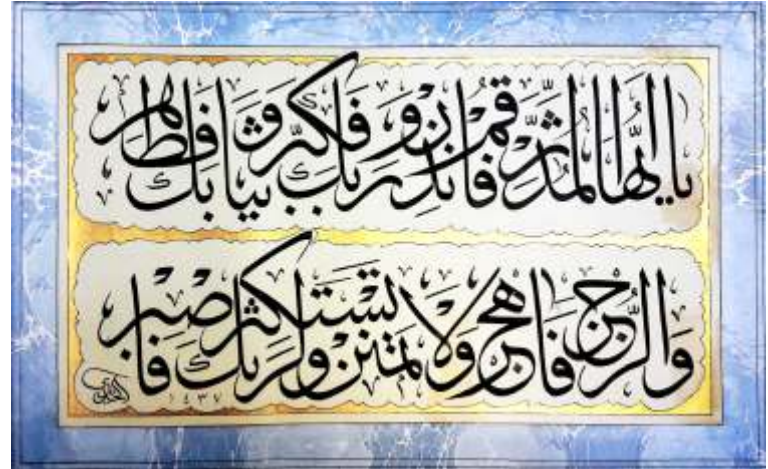 يا ايها المدثر قم فانذر وربك فكبر وثيابك فطهر
والرجز فاهجر ولا تمنن تستكثر ولربك فاصبر
١٤٣٧